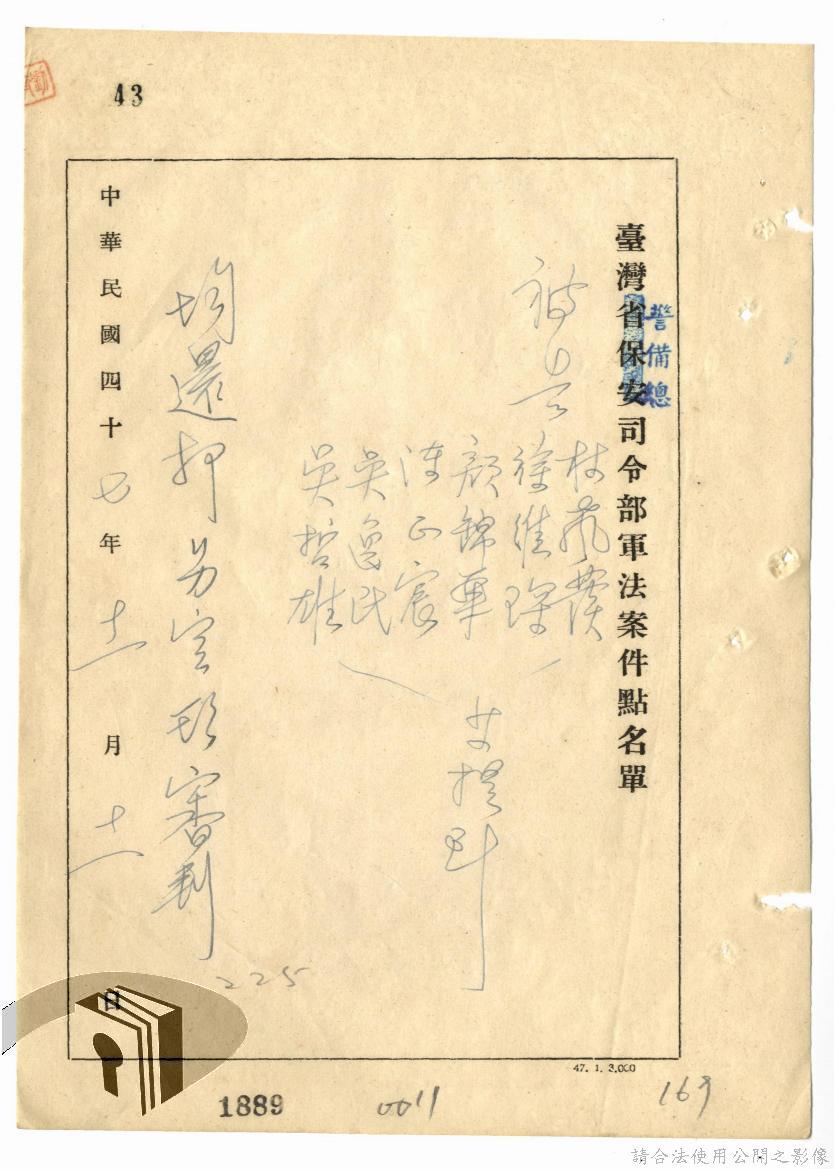 43
臺灣省保安司令部軍法案件點名單
警備總
被告
林
徐維琛
顏錦華
陳正宸
吳魯民
吳哲雄
提到
均還押另定期審判
225
中華民國四十七年十一月十一日
47. 1. 3,000
1889
0011
169
請合法使用公開之影像